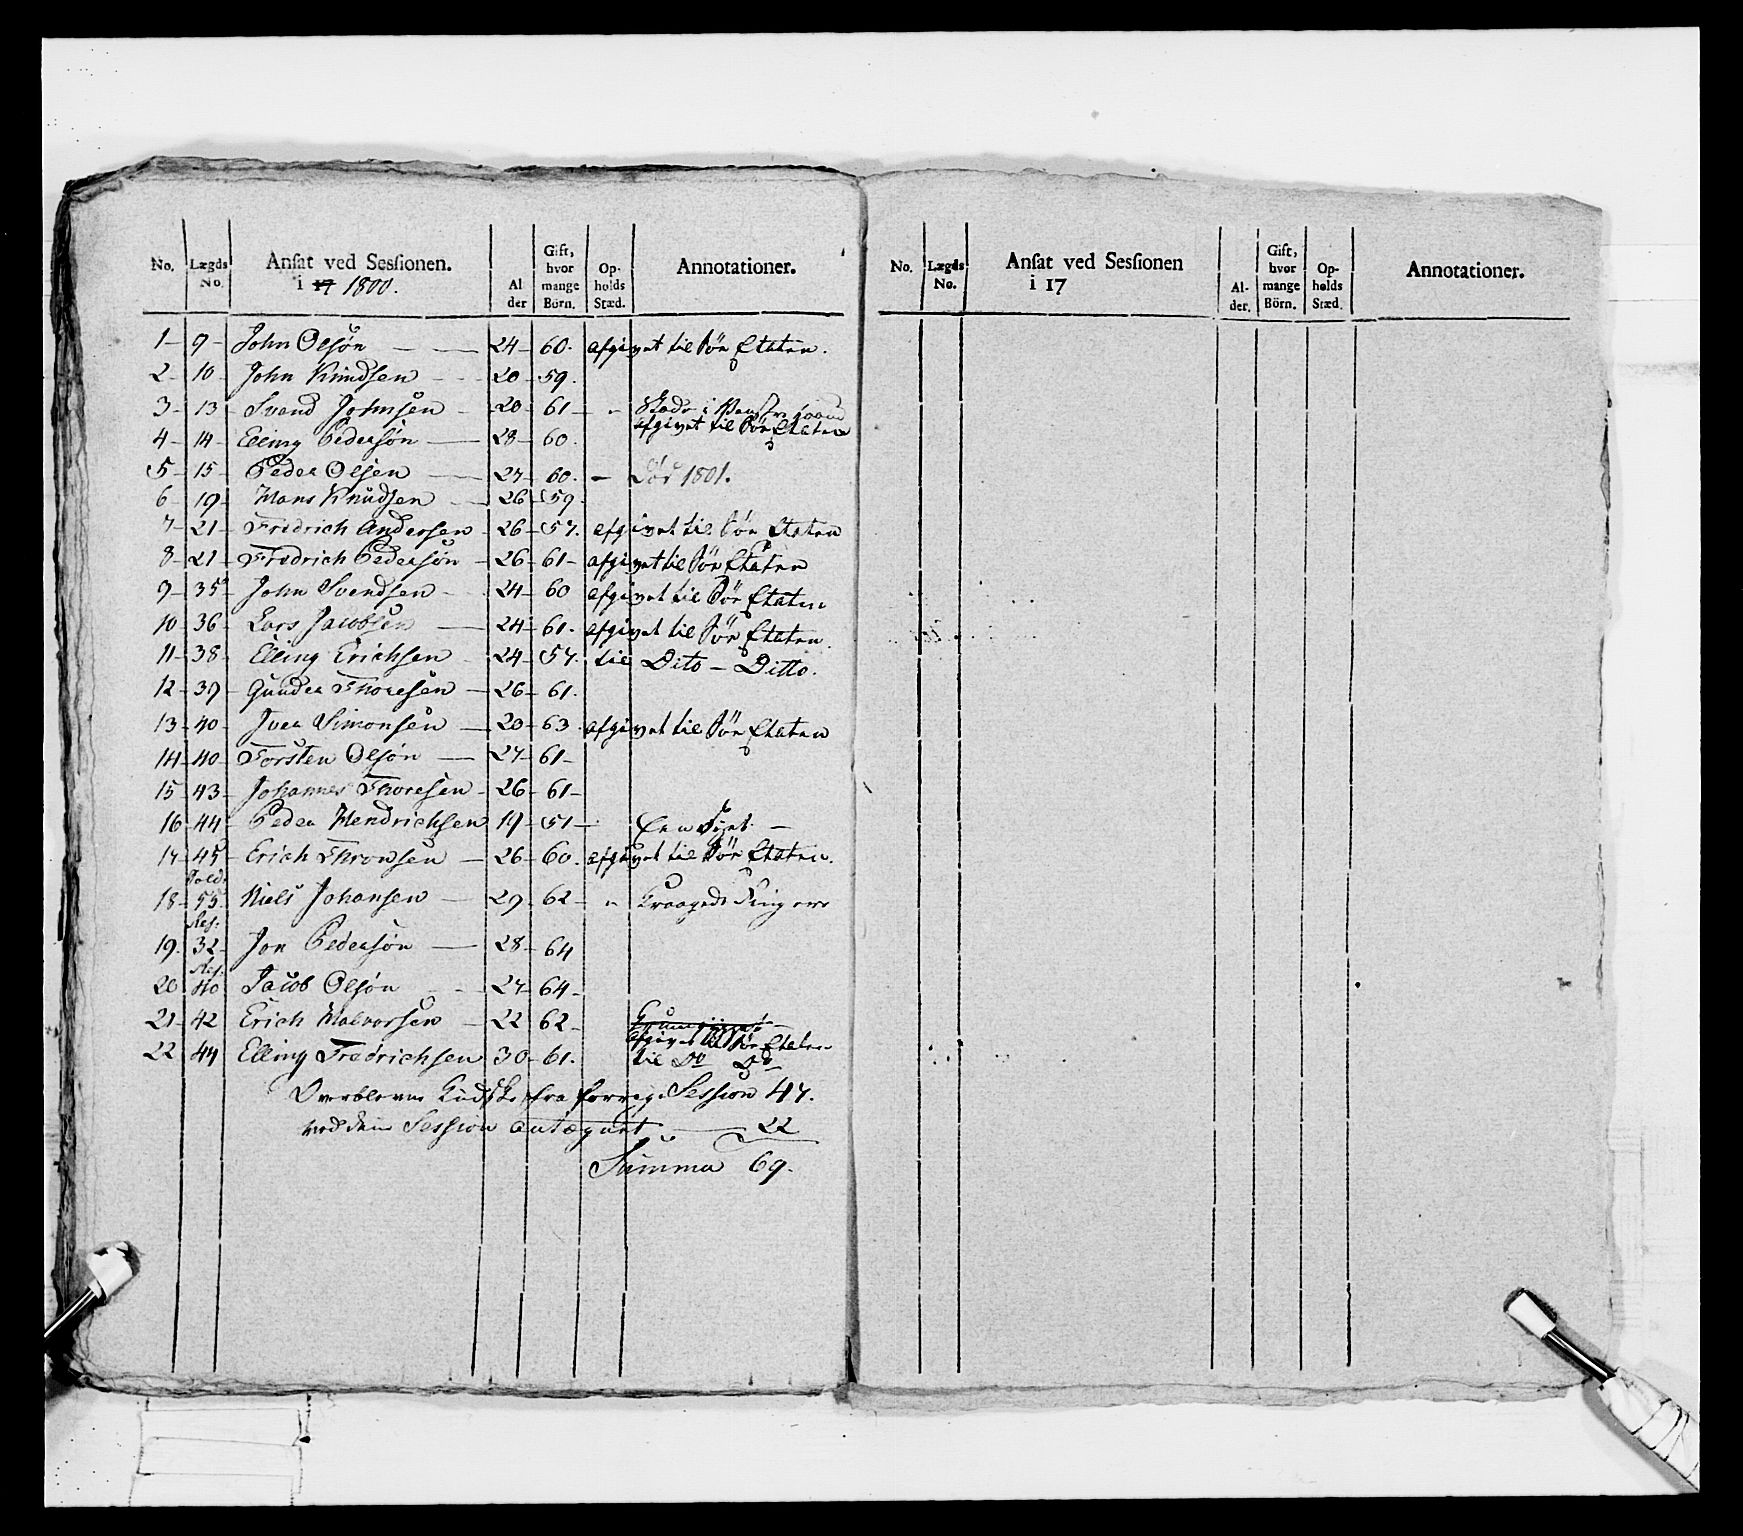 No. Lægds No. Ansat ved Sessionen. i 17 1800. Al der Gift, hvor mange Börn. Op- holds Stæd. Annotationer.
1 - 9 - John Olsøn - 24 - 60. afgivet til Søe Etaten.
2 - 10 - John Knudsen - 20 - 59.
3 - 13 - Svend Johnsen - 20 - 61 - " Skade i Venstre Haand
4 - 14 - Elling Pedersøn - 28 - 60. afgivet til Søe Etaten
5 - 15 - Peder Olsen - 27 - 60. - Død 1801.
6 - 19 - Hans Knudsen - 26 - 59
7 - 21 - Fredrich Andersen - 26 - 57. afgivet til Søe Etaten
8 - 21 - Fredrich Pedersøn - 26 - 61 - afgivet til Søe Etaten
9 - 35 - John Svendsen - 24 - 60 afgivet til Søe Etaten
10 - 36 - Lars Jacobsen - 24 - 61. afgivet til Søe Etaten.
11 - 38 - Elling Erichsen - 24 - 57. til Dito - Ditto.
12 - 39 - Gunder Thoresen - 26 - 61.
13 - 40 - Iver Simonsen - 20 - 63. afgivet til Søe Etaten
14 - 40 - Torsten Olsøn - 27 - 61 -
15 - 43 - Johannes Thoresen - 26 - 61 -
16 - 44 - Peder Hendrichsen 19 - 51 -
17 - 45 - Erich Thronsen - 26 - 60. afgivet til Søe Etaten.
18 - 53. Niels Johansen - 29 - 62 - " Kraagede Fingere
Res.
19. 32 - Jon Pedersøn - 28 - 64
Res.
20 40 Jacob Olsøn - 27 - 64 -
21 - 42 Erich Halvorsen - 22 - 62 -
afgivet til Søe Etaten
22 - 44 Elling Fredrichsen - 30 - 61. til Do Do
Overblevne fra forrige Session 47.
ved denne Session antegnet - 22
Summa 69.
No. Lægds No. Ansat ved Sessionen i 17 Al- der. Gift, hvor mange Börn. Op- holds Stæd. Annotationer.